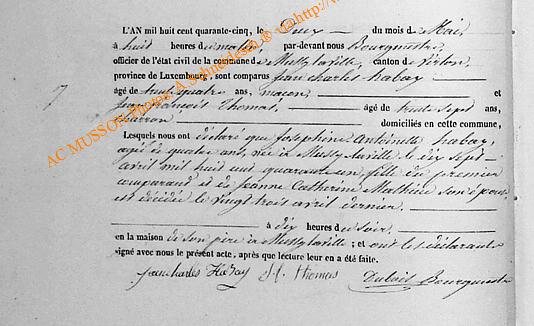 L'AN mil huit cent quarante-cinq, le Deux du mois de Mai,
à huit heures du matin, par-devant nous Bourgmestre,
officier de l'état civil de la commune de Mussy la ville, canton de Virton,
province de Luxembourg, sont comparus Jean Charles habay
âgé de trente quatre ans, maçon, et
Jean françois Thomas, âgé de trente sept ans,
domiciliés en cette commune,
Lesquels nous ont déclaré que Joséphine Antoinette habay,
agée de quatre ans, née à Mussy la ville le dix sept
avril mil huit cent quarante un, fille du premier
comparant et de Jeanne Catherine Mathieu son épouse
est décédée le vingt trois avril dernier.
à dix heures du soir,
en la maison de son père à Mussy la ville; et ont les déclarants
signé avec nous le présent acte, après que lecture leur en a été faite.
Jean Charles Habay J. f. Thomas Dubois Bourgmestre
7
AC MUSSON Photos: A Schneider @ via http://www.